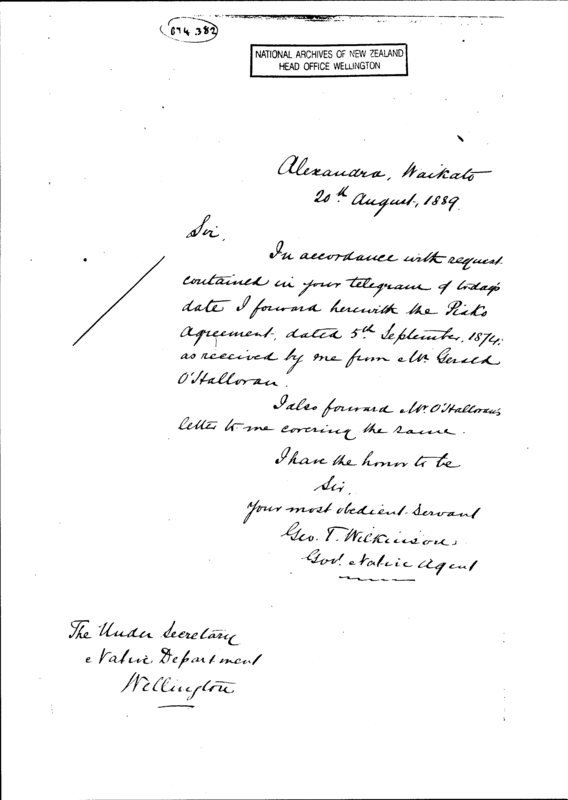 674.382
NATIONAL ARCHIVES OF NEW ZEALAND
HEAD OFFICE WELLINGTON
Alexandra, Waikato
20th August, 1889.
Sir,
In accordance with request
contained in your telegram of today's
date I forward herewith the Piako
Agreement, dated 5th September, 1874,
as received by me from Mr Gerald
O'Halloran.
I also forward Mr O'Halloran's
letter to me covering the same.
I have the honor to be
Sir,
Your most obedient Servant
Geo. T. Wilkinson,
Gov. Native Agent
The Under Secretary
Native Department
Wellington